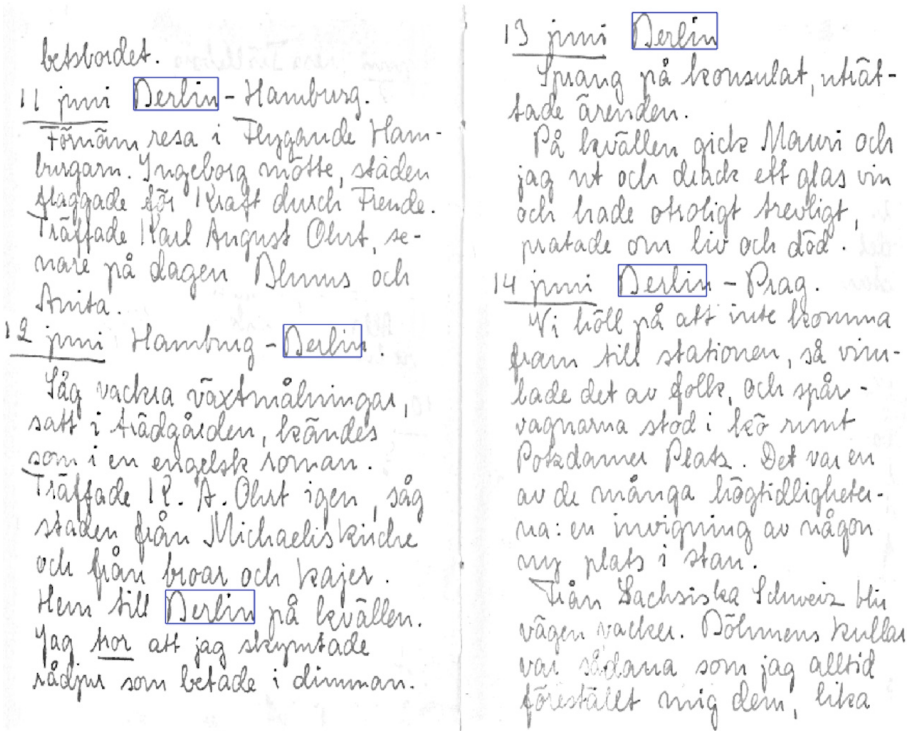 betsbordet.
11 juni Berlin - Hamburg.
Förnäm resa i Flygande Ham-
burgarn. Ingeborg mötte, staden
flaggade för Kraft durch Freude.
Träffade Karl August Ohrt, se-
nare på dagen Blums och
Anita.
12 juni Hamburg - Berlin.
Såg vackra växtmålningar,
satt i trädgården, kändes
som i en engelsk roman.
Träffade K. A. Ohrt igen, såg
staden från Michaeliskirche
och från broar och kajer.
Hem till Berlin på kvällen.
Jag tror att jag skymtade
rådjur som betade i dimman.
13 juni Berlin
Sprang på konsulat, uträt-
tade ärenden.
På kvällen gick Mauri och
jag ut och drack ett glas vin
och hade otroligt trevligt,
pratade om liv och död.
14 juni Berlin - Prag.
Vi höll på att inte komma
fram till stationen, så vim-
lade det av folk, och spår-
vagnarna stod i kö runt
Potsdamer Platz. Det var en
av de många högtidligheter-
na: en invigning av någon
ny plats i stan.
Från Sachsiska Schweiz blir
vägen vacker. Böhmens kullar
var sådana som jag alltid
föreställt mig dem, lika